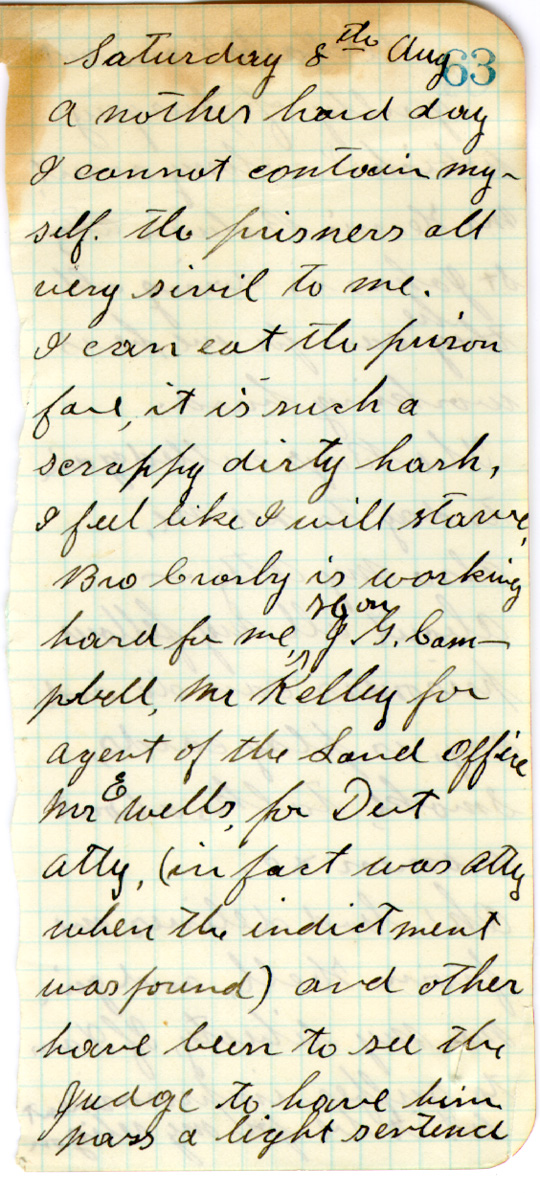 Saturday 8th Aug 63
Another hard day
I cannot contain my-
self. the prisners all
very sivil to me.
I can eat the prison
fare, it is such a
scrappy dirty hash,
I feel like I will starve
Bro Crosby is working
hard for me, Hon J. G. Cam-
pbell, Mr Kelley for
agent of the Land Office
Mr E Wells, for Dist
atty, (in fact was atty
when the indictment
was found) and other
have been to see the
Judge to have him
pass a light sentence